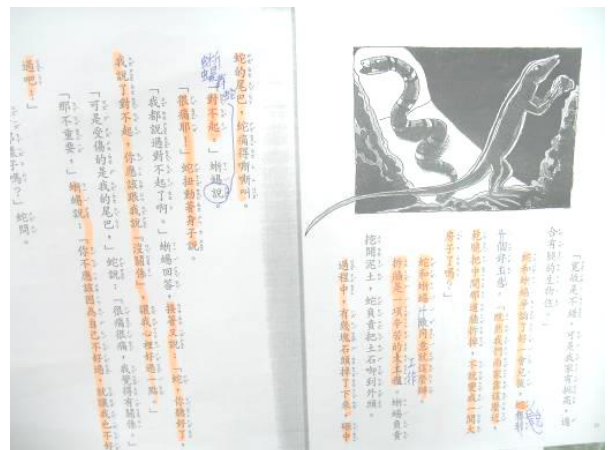 「寬敞是不錯，可是我家有挑高，適
合有頸的生物住。」
蛇和蜥蜴爭論了好一會兒後，
個好主意：「既然我們兩家靠這麼近，
乾脆把中間那道牆拆掉，不就變成一間大
房子了嗎？」
蛇和蜥蜴 同意就這麼辦。
拆牆是一項辛苦的 工作。蜥蜴負責
挖開泥土，蛇負責把土石啣到外頭。
過程中，有幾塊石頭掉了下來，砸中
蛇的尾巴，蛇痛得嘶嘶叫。
「對不起。」蜥蜴說。
「很痛耶！」蛇扭動著身子說。
「我都說過對不起了啊。」蜥蜴回答，接著又說：「蛇，你聽好了，
我說了對不起，你應該跟我說『沒關係』，讓我心裡好過一點。」
「可是受傷的是我的尾巴，」蛇說：「很痛很痛，我覺得有關係。」
「那不重要，」蜥蜴說：「你不應該因為自己不好過，就讓我也不好
過吧！」
子嗎？」蛇問。